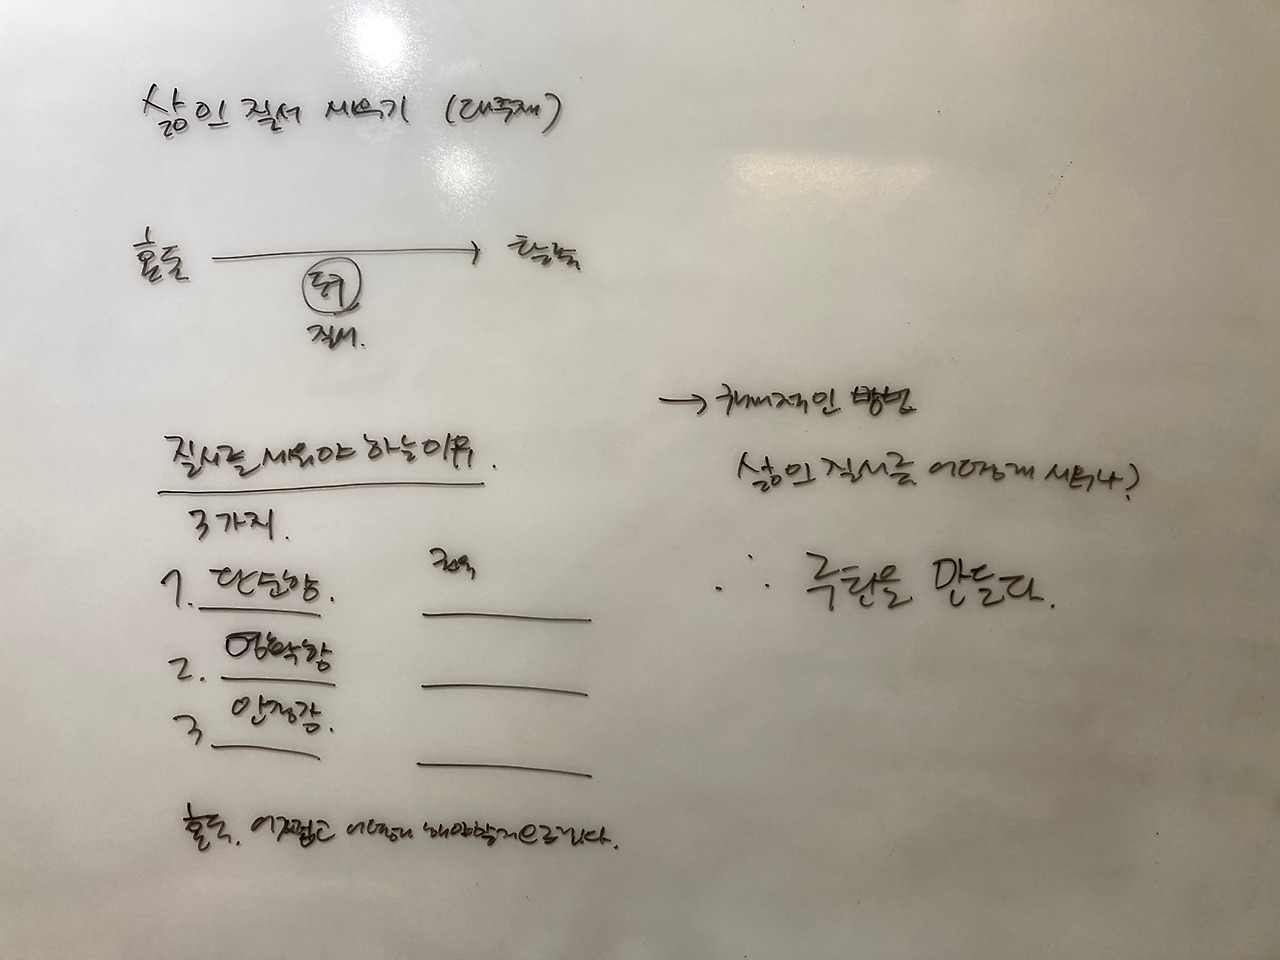 삶의 질서 세우기 (대주제)
혼돈 → 하늘뜻
도구
질서.
질서를 세워야 하는 이유.
3가지.
1. 단순함.
2. 명확함
3 안정감.
혼돈. 어지럽고 어떻게 해야할지 모르겠다.
→ 구체적인 방법
삶의 질서를 어떻게 세우나?
∴ 루틴을 만들다.